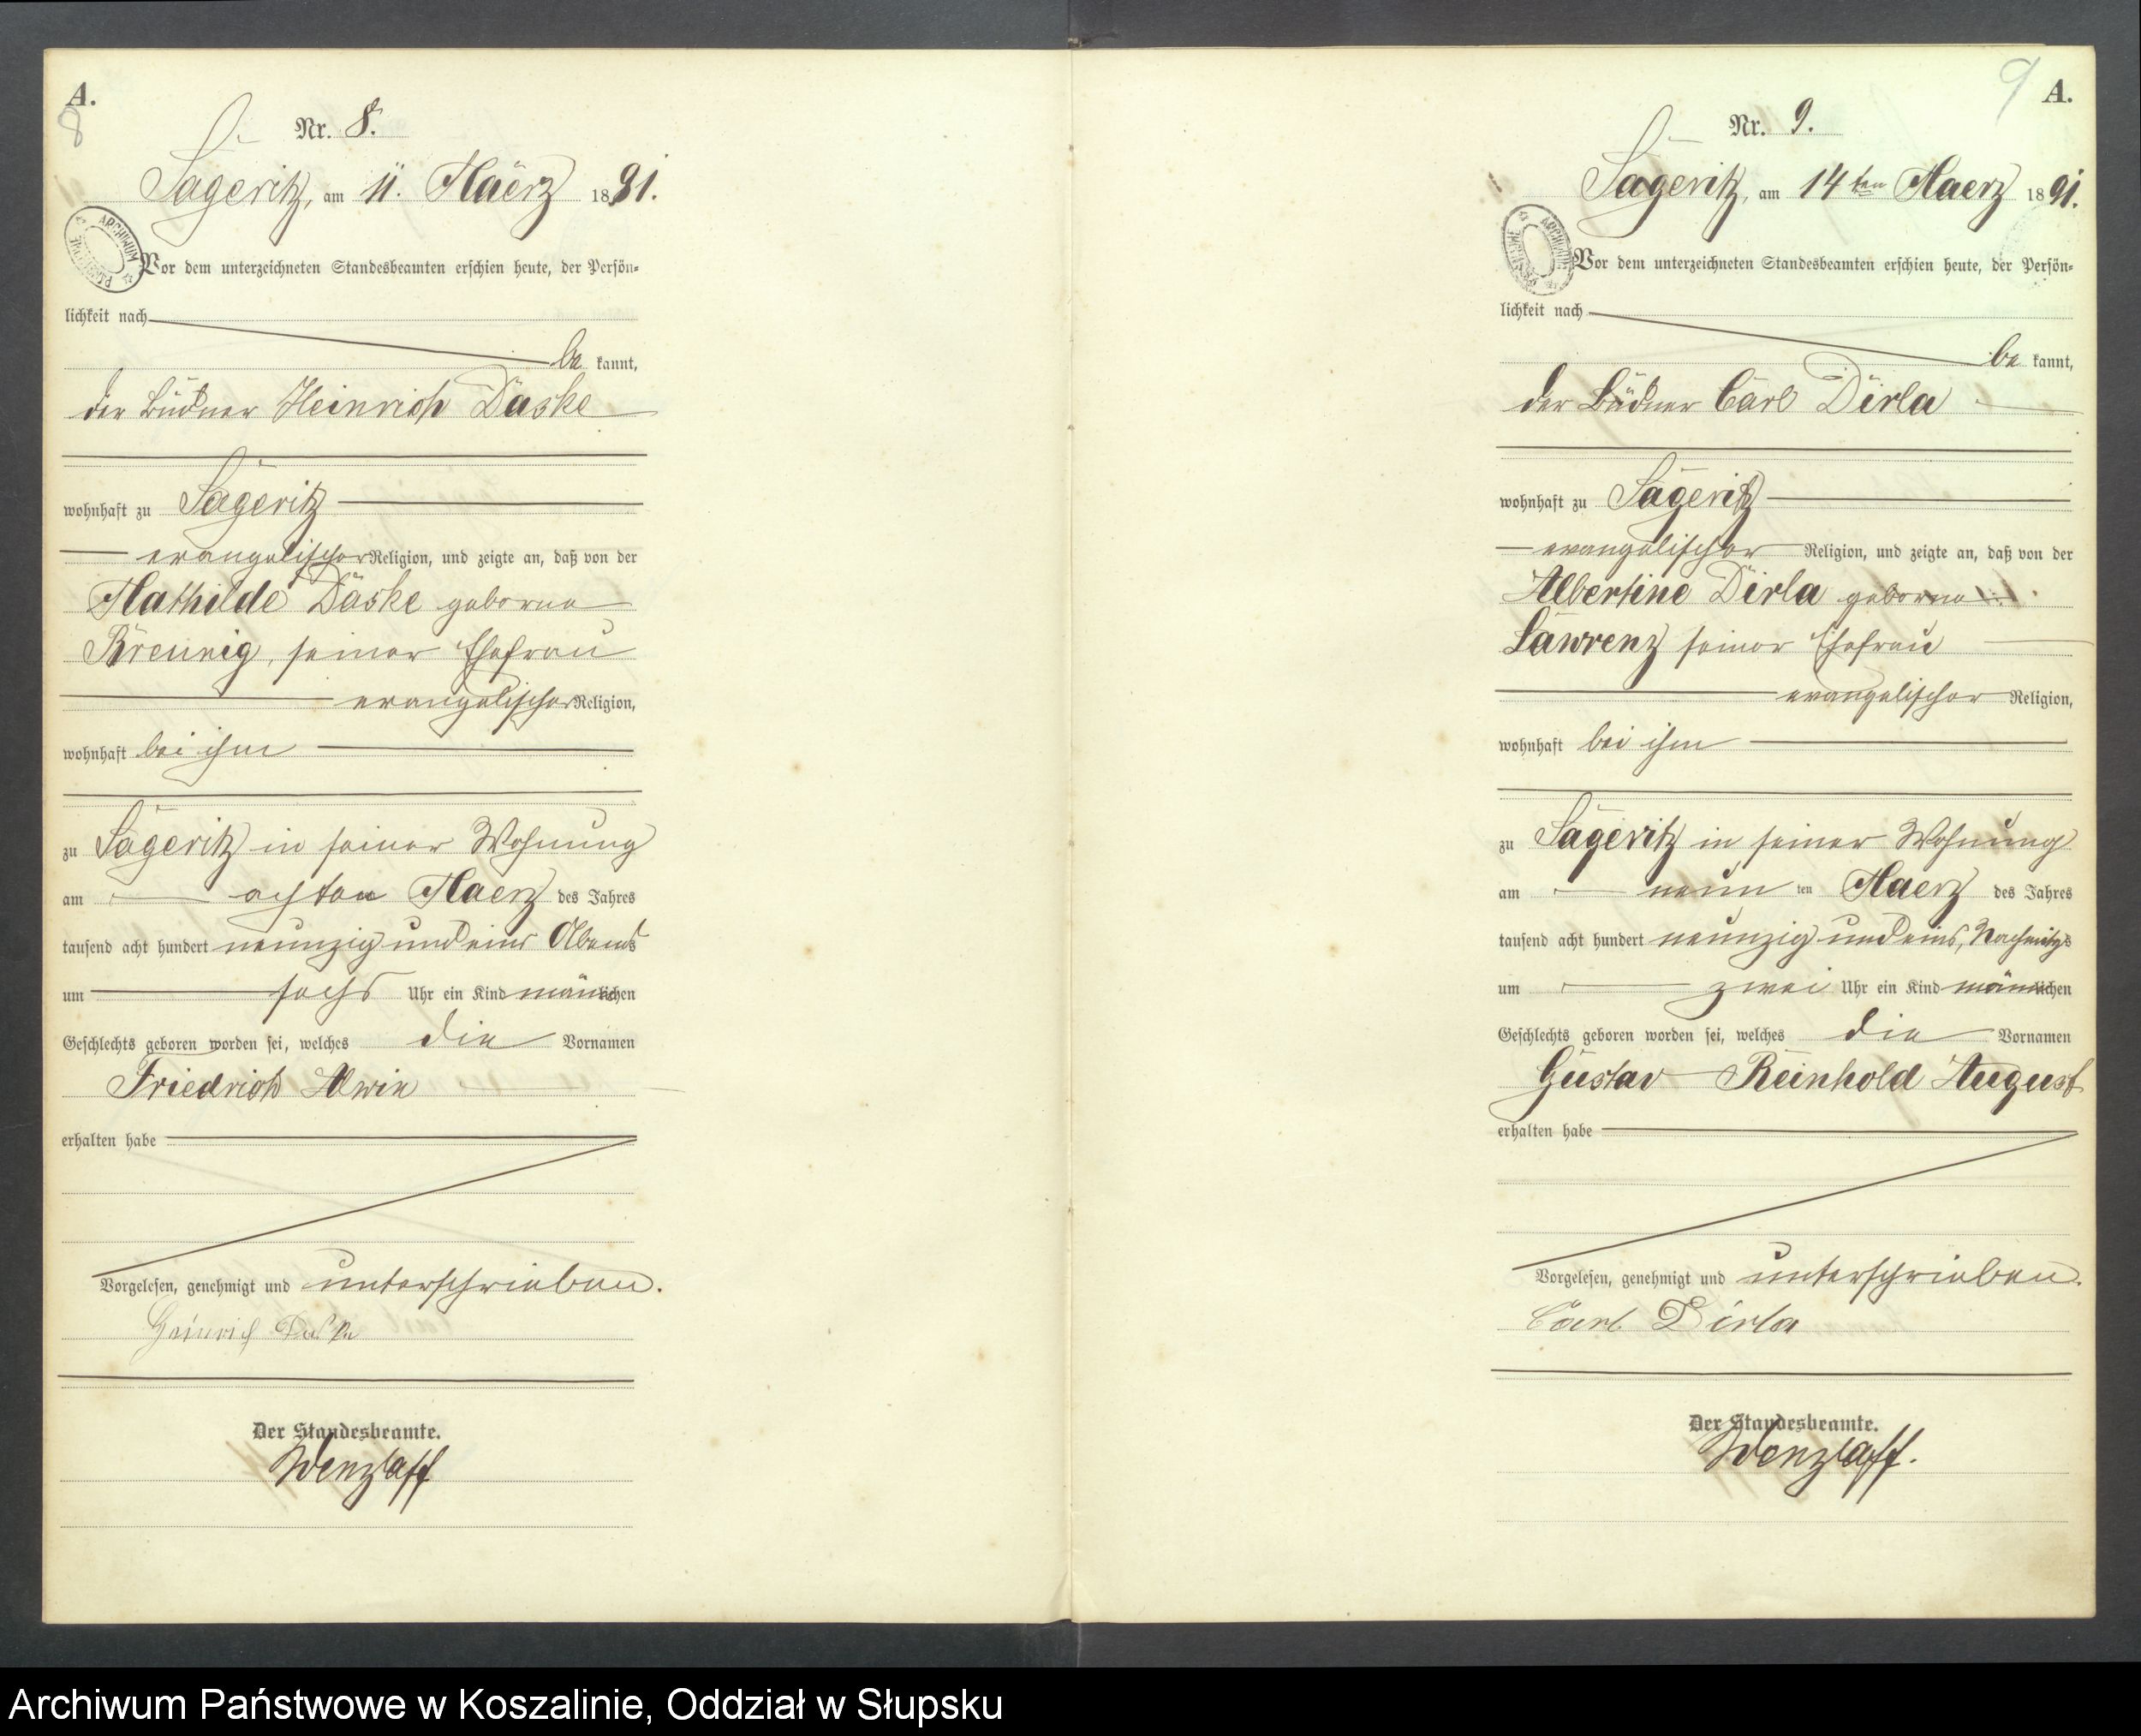 A.
8
Nr. 8.
Sageritz, am 11. Maerz 1891.
ARCHIWUM
Vor dem unterzeichneten Standesbeamten erschien heute, der Persön-
lichkeit nach
be kannt,
der Büdner Heinrich Daske
wohnhaft zu Sageritz
evangelischer Religion, und zeigte an, daß von der
Mathilde Daske geborne
seiner Ehefrau
evangelischer Religion,
wohnhaft bei ihm
zu Sageritz in seiner Wohnung
am achten Maerz des Jahres
tausend acht hundert neunzig und eins Abends
um sechs Uhr ein Kind männlichen
Geschlechts geboren worden sei, welches die Vornamen
Friedrich Alwin
erhalten habe
Vorgelesen, genehmigt und unterschrieben.
Heinrich Daske
Der Standesbeamte.
Wenzlaff
9
A.
Nr. 9.
Sageritz, am 14ten Maerz 1891.
ARCHIWUM
Vor dem unterzeichneten Standesbeamten erschien heute, der Persön-
lichkeit nach
be kannt,
der Büdner Carl Dirla
wohnhaft zu Sageritz
evangelischer Religion, und zeigte an, daß von der
Albertine Dirla geborne
Lawrenz seiner Ehefrau
evangelischer Religion,
wohnhaft bei ihm
zu Sageritz in seiner Wohnung
am neun ten Maerz des Jahres
tausend acht hundert neunzig und eins, Nachmitgs
um zwei Uhr ein Kind männlichen
Geschlechts geboren worden sei, welches die Vornamen
Gustav Reinhold August
erhalten habe
Vorgelesen, genehmigt und unterschrieben.
Carl Dirla
Der Standesbeamte.
Wenzlaff.
Archiwum Państwowe w Koszalinie, Oddział w Słupsku